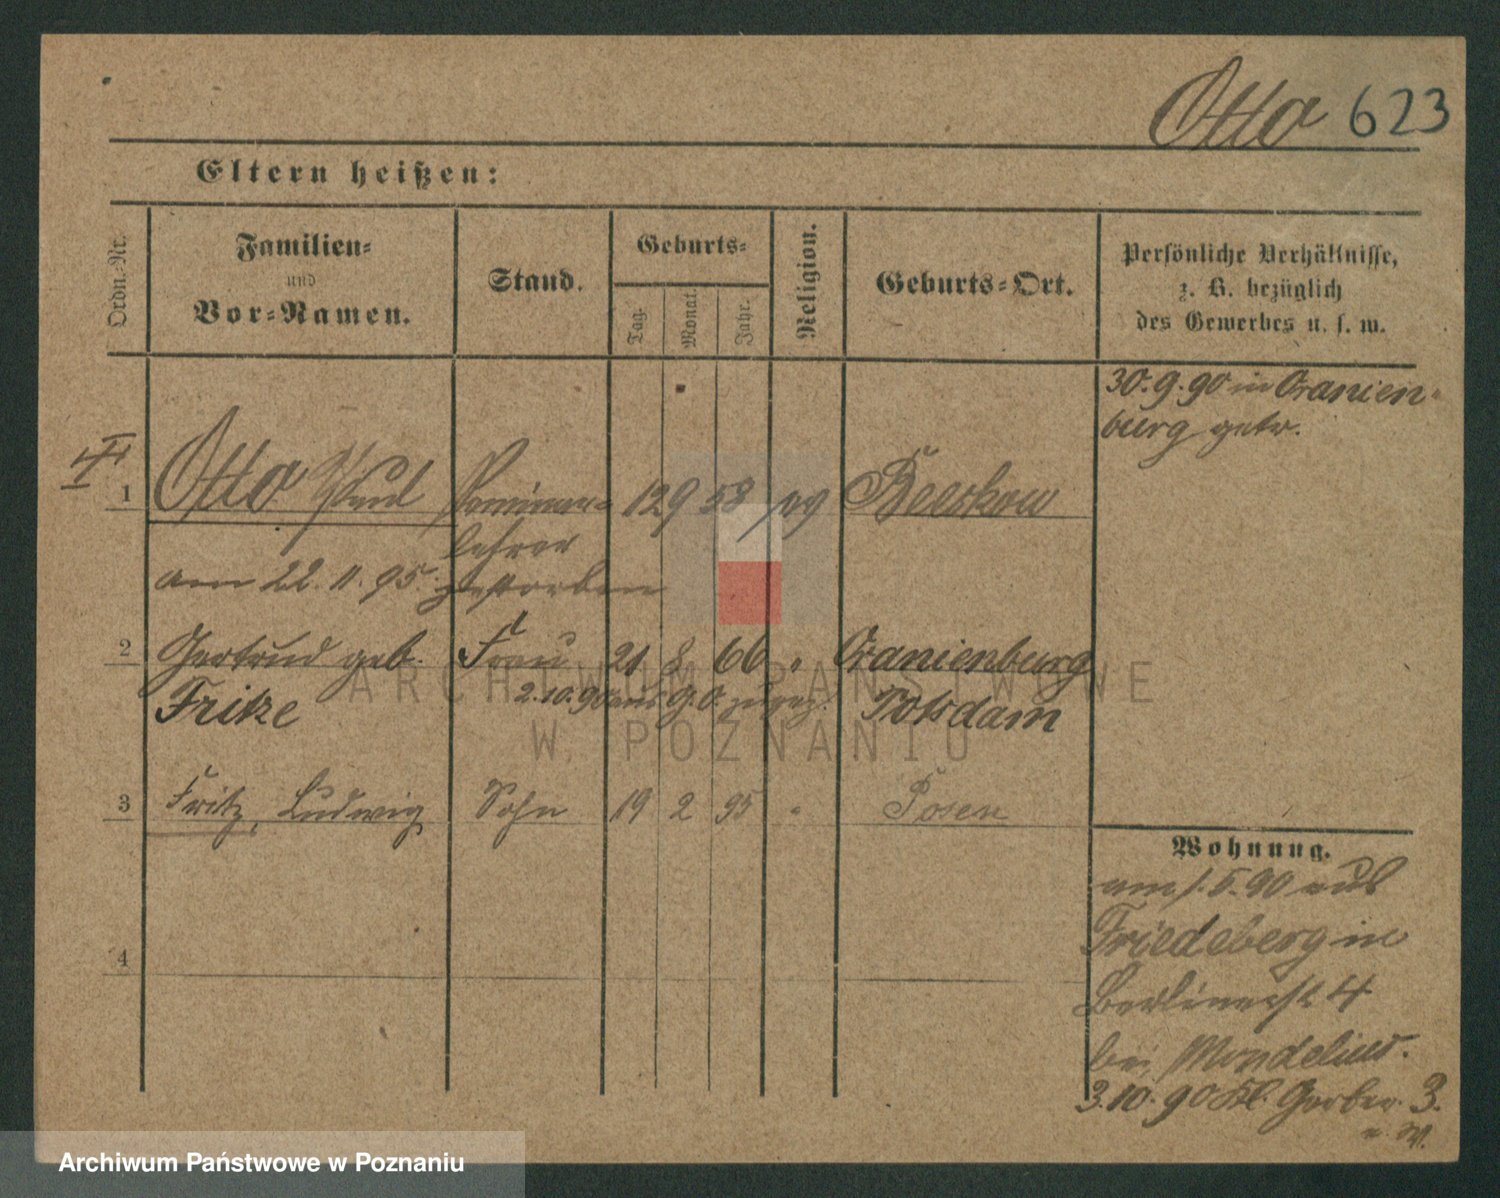 Otto 623
Eltern heißen:
Ordn.-Nr.
Familien-
und
Vor-Namen.
Stand.
Geburts-
Tag.
Monat.
Jahr.
Religion.
Geburts-Ort.
Persönliche Verhältnisse,
z. B. bezüglich
des Gewerbes u. s. w.
30.9.90 in Oranien-
burg getr.
1 Otto Paul Seminar- 12 9 58 evg Beeskow
lehrer
am 22.11.95. gestorben
2 Gertrud geb. Frau 21 8 66 " Oranienburg
Fritze 2.10.90 aus g. O. zugez. Potsdam
3 Fritz, Ludwig Sohn 19 2 95 " Posen
4
Wohnung.
am 1.5.90 aus
Friedeberg in
Berlinerstr 4
bei
3.10.90 Kl. Gerber. 3.
ARCHIWUM PAŃSTWOWE
W POZNANIU
Archiwum Państwowe w Poznaniu